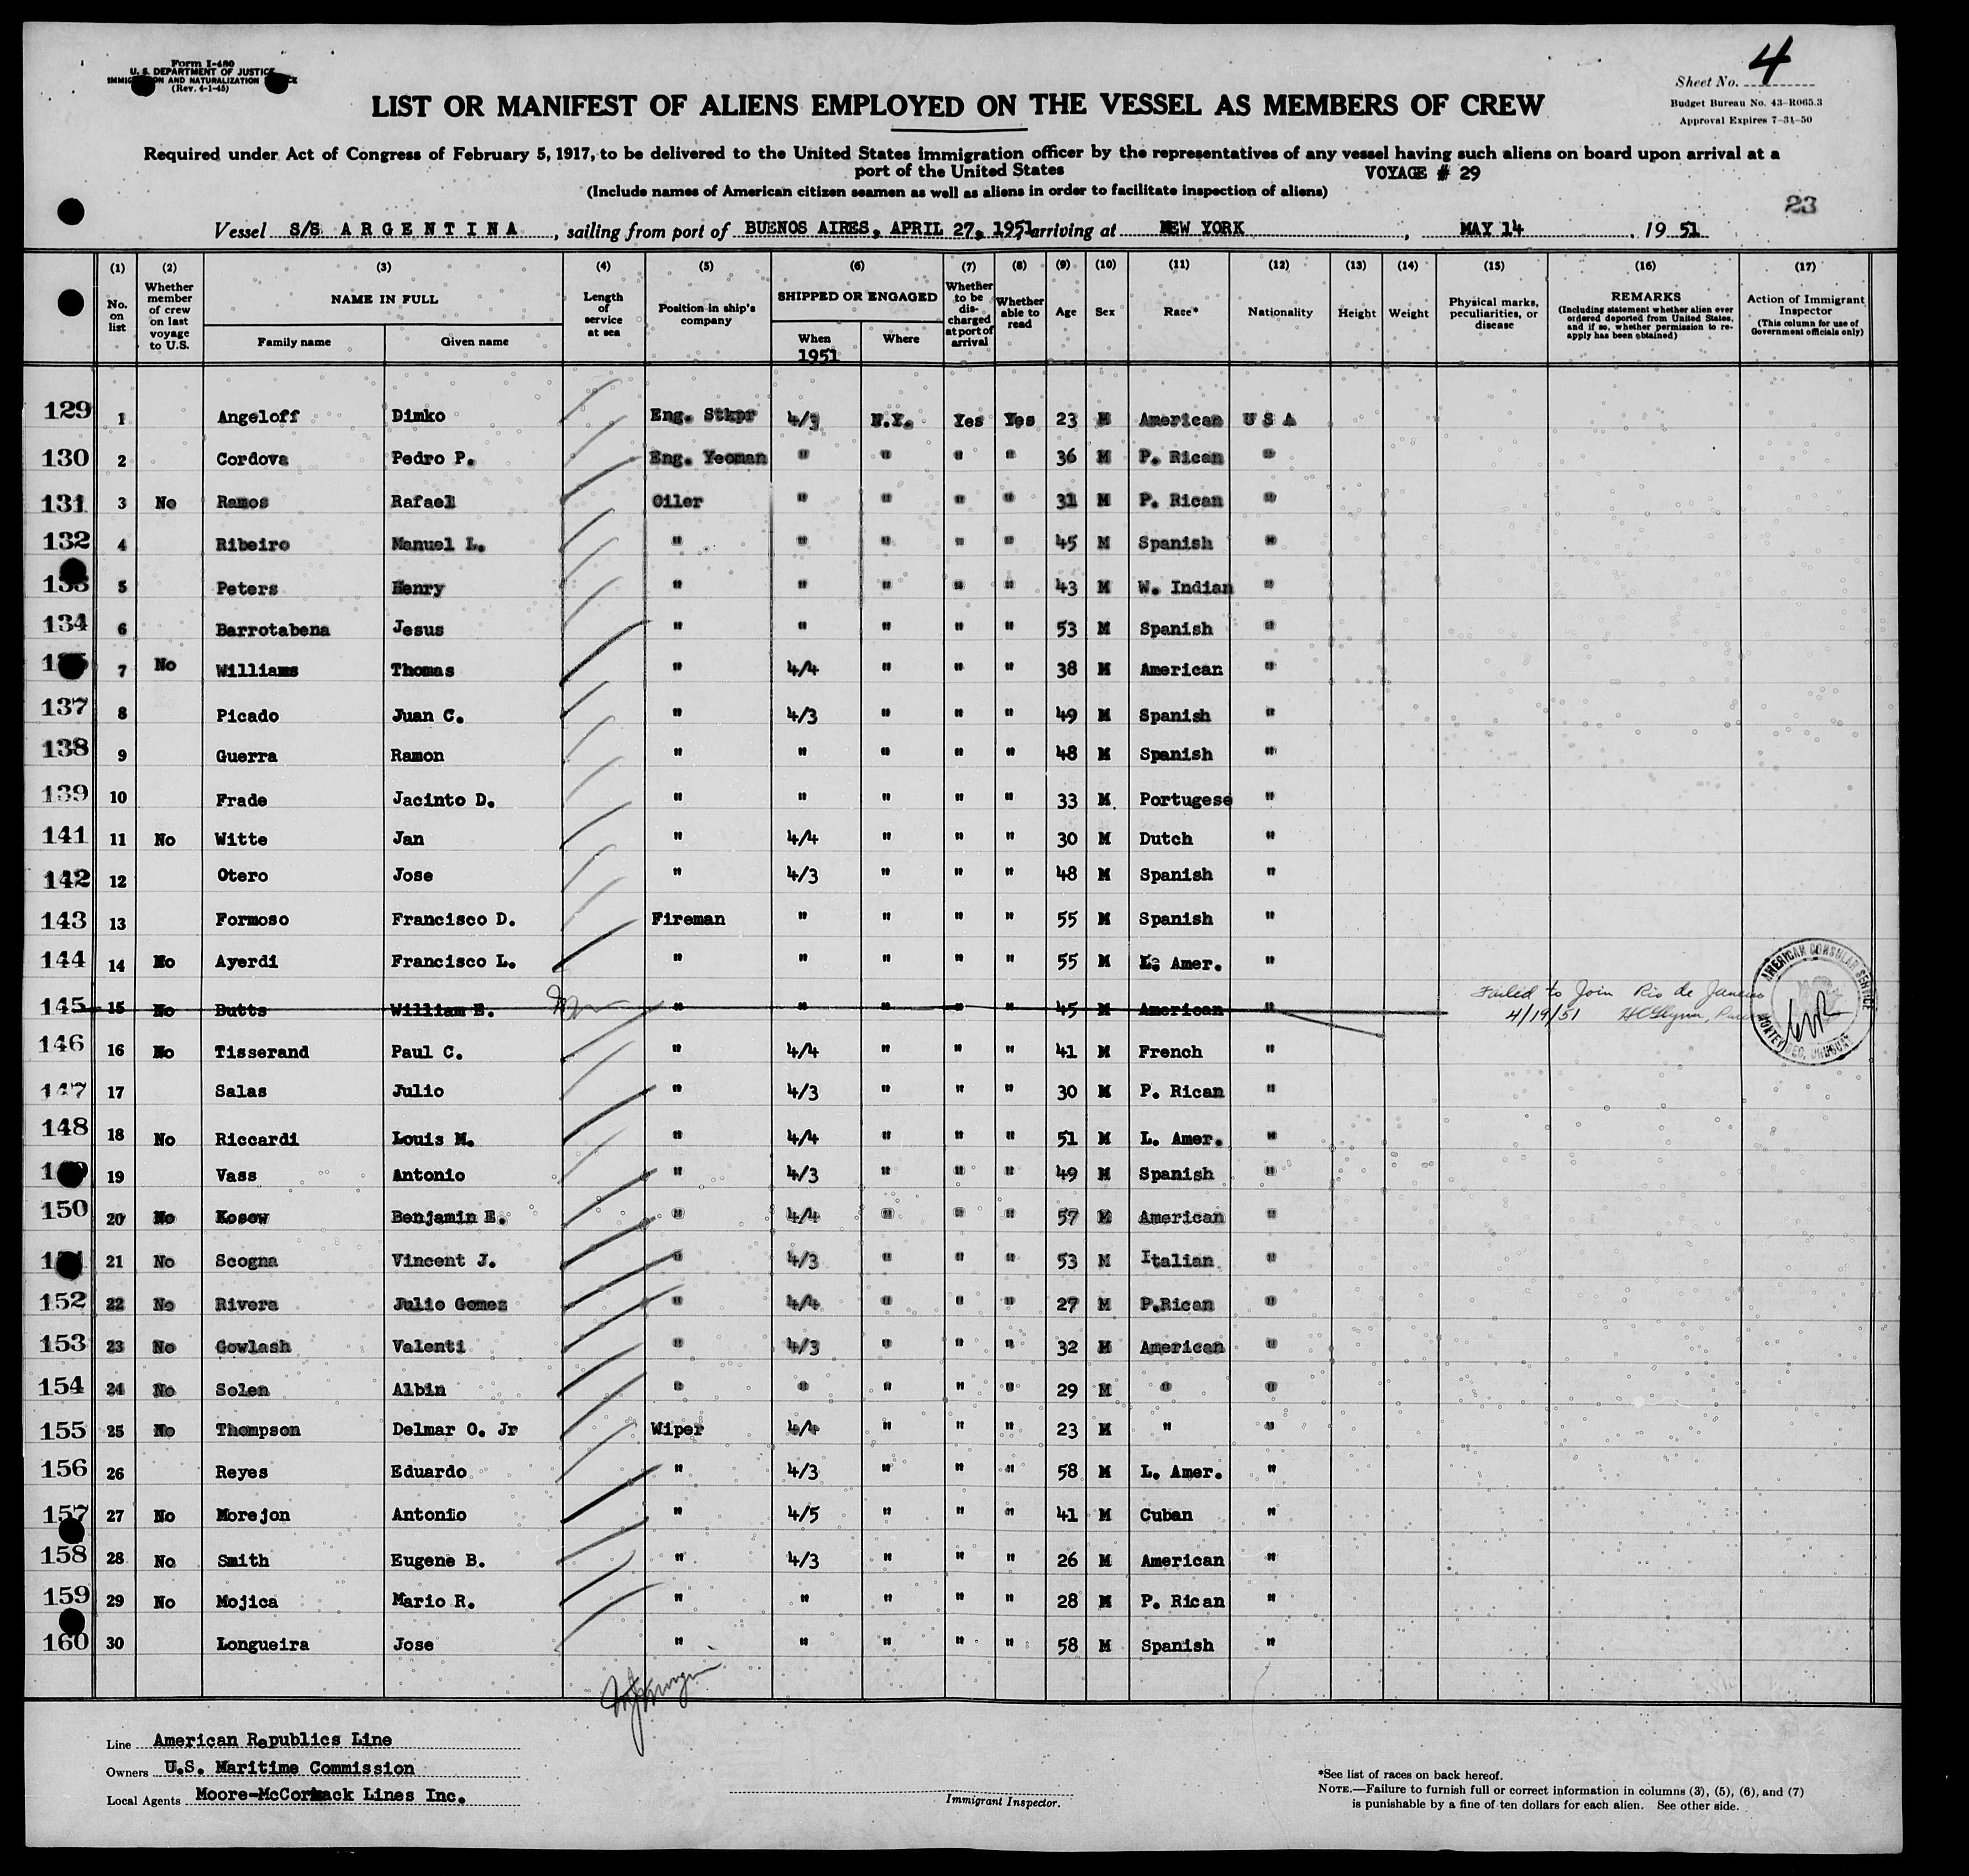 Form I-480
U. S. DEPARTMENT OF JUSTICE
IMMIGRATION AND NATURALIZATION SERVICE
(Rev. 4-1-45)
Sheet No. 4
Budget Bureau No. 43-R065.3
Approval Expires 7-31-50
LIST OR MANIFEST OF ALIENS EMPLOYED ON THE VESSEL AS MEMBERS OF CREW
Required under Act of Congress of February 5, 1917, to be delivered to the United States immigration officer by the representatives of any vessel having such aliens on board upon arrival at a
port of the United States
VOYAGE # 29
(Include names of American citizen seamen as well as aliens in order to facilitate inspection of aliens)
23
Vessel S/S ARGENTINA, sailing from port of BUENOS AIRES, APRIL 27, 1951, arriving at NEW YORK, MAY 14, 1951
(1) (2) (3) (4) (5) (6) (7) (8) (9) (10) (11) (12) (13) (14) (15) (16) (17)
No. on list
Whether member of crew on last voyage to U.S.
NAME IN FULL
Family name
Given name
Length of service at sea
Position in ship's company
SHIPPED OR ENGAGED
When
1951
Where
Whether to be discharged at port of arrival
Whether able to read
Age
Sex
Race*
Nationality
Height
Weight
Physical marks, peculiarities, or disease
REMARKS
(Including statement whether alien ever ordered deported from United States, and if so, whether permission to reapply has been obtained)
Action of Immigrant Inspector
(This column for use of Government officials only)
129 1 Angeloff Dimko Eng. Stkpr 4/3 N.Y. Yes Yes 23 M American U S A
130 2 Cordova Pedro P. Eng. Yeoman " " " " 36 M P. Rican "
131 3 No Ramos Rafael Oiler " " " " 31 M P. Rican "
132 4 Ribeiro Manuel L. " " " " " 45 M Spanish "
133 5 Peters Henry " " " " " 43 M W. Indian "
134 6 Barrotabena Jesus " " " " " 53 M Spanish "
7 No Williams Thomas " 4/4 " " " 38 M American "
137 8 Picado Juan C. " 4/3 " " " 49 M Spanish "
138 9 Guerra Ramon " " " " " 48 M Spanish "
139 10 Frade Jacinto D. " " " " " 33 M Portugese "
141 11 No Witte Jan " 4/4 " " " 30 M Dutch "
142 12 Otero Jose " 4/3 " " " 48 M Spanish "
143 13 Formoso Francisco D. Fireman " " " " 55 M Spanish "
144 14 No Ayerdi Francisco L. " " " " " 55 M L. Amer. "
145 15 No Butts William E. " " " " " 45 M American " Failed to Join Rio de Janeiro
4/19/51
AMERICAN CONSULAR SERVICE
MONTEVIDEO, URUGUAY
146 16 No Tisserand Paul C. " 4/4 " " " 41 M French "
147 17 Salas Julio " 4/3 " " " 30 M P. Rican "
148 18 No Riccardi Louis M. " 4/4 " " " 51 M L. Amer. "
149 19 Vass Antonio " 4/3 " " " 49 M Spanish "
150 20 No Kosow Benjamin E. " 4/4 " " " 57 M American "
151 21 No Scogna Vincent J. " 4/3 " " " 53 M Italian "
152 22 No Rivera Julio Gomez " 4/4 " " " 27 M P.Rican "
153 23 No Gowlash Valenti " 4/3 " " " 32 M American "
154 24 No Solen Albin " " " " " 29 M " "
155 25 No Thompson Delmar O. Jr Wiper 4/4 " " " 23 M " "
156 26 Reyes Eduardo " 4/3 " " " 58 M L. Amer. "
157 27 No Morejon Antonio " 4/5 " " " 41 M Cuban "
158 28 No Smith Eugene B. " 4/3 " " " 26 M American "
159 29 No Mojica Mario R. " " " " " 28 M P. Rican "
160 30 Longueira Jose " " " " " 58 M Spanish "
Line American Republics Line
Owners U.S. Maritime Commission
Local Agents Moore-McCormack Lines Inc.
Immigrant Inspector.
*See list of races on back hereof.
NOTE.—Failure to furnish full or correct information in columns (3), (5), (6), and (7)
is punishable by a fine of ten dollars for each alien. See other side.